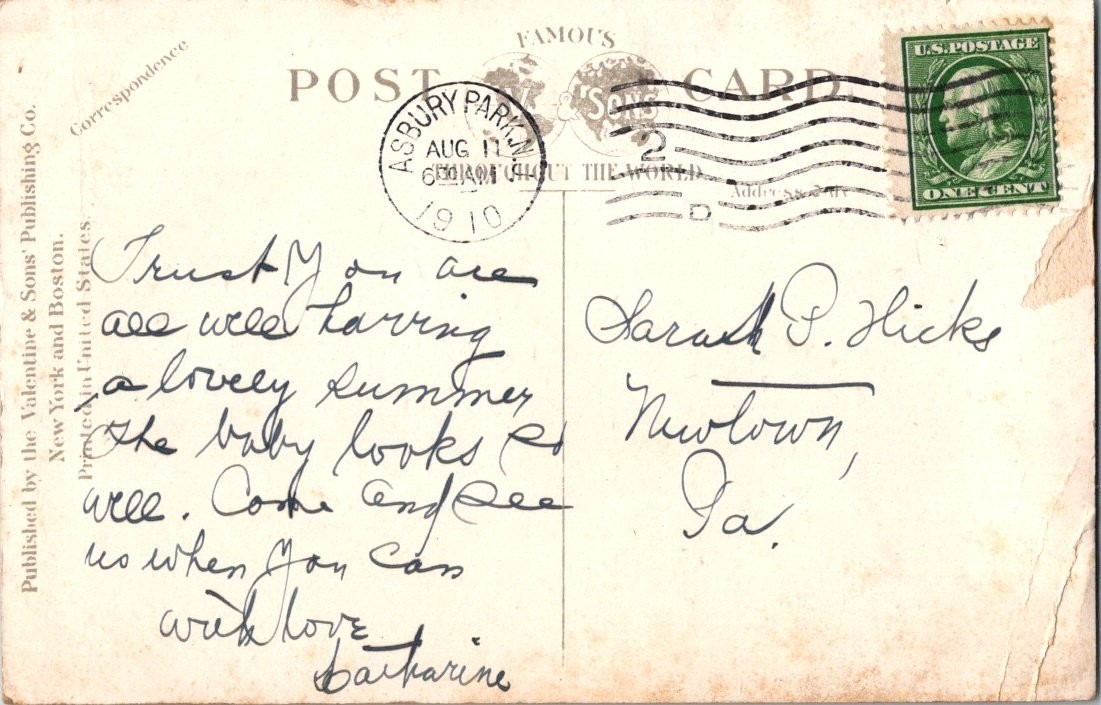 Published by the Valentine & Sons' Publishing Co.
New York and Boston.
Printed in United States.
Correspondence
FAMOUS
POST CARD
& SONS
THROUGHOUT THE WORLD
Address Only
ASBURY PARK, N.J.
AUG 11
6 30 AM
1910
2
D
U.S. POSTAGE
ONE CENT
Trust You are
all well having
a lovely summer
The baby looks so
well. Come and see
us when you can
with love
Catharine
Sarah P. Hicks
Newtown,
Pa.